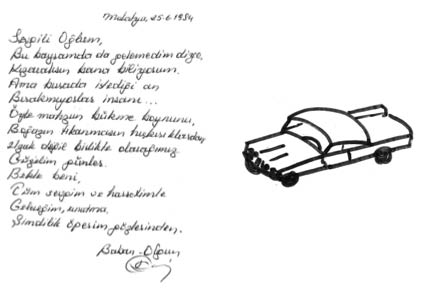 Malatya, 25.6.1984
Sevgili Oğlum,
Bu bayramda da gelemedim dize,
Kızacaksın bana biliyorum.
Ama burada istediği an
Bırakmıyorlar insanı...
Öyle mahzun bükme boynunu,
Boğazın tıkanmasın hıçkırıklardan
Uzak değil birlikte olacağımız
Güzelim günler.
Bekle beni,
Tüm sevgim ve hasretimle
Geleceğim, unutma.
Şimdilik öperim gözlerinden.
Baban